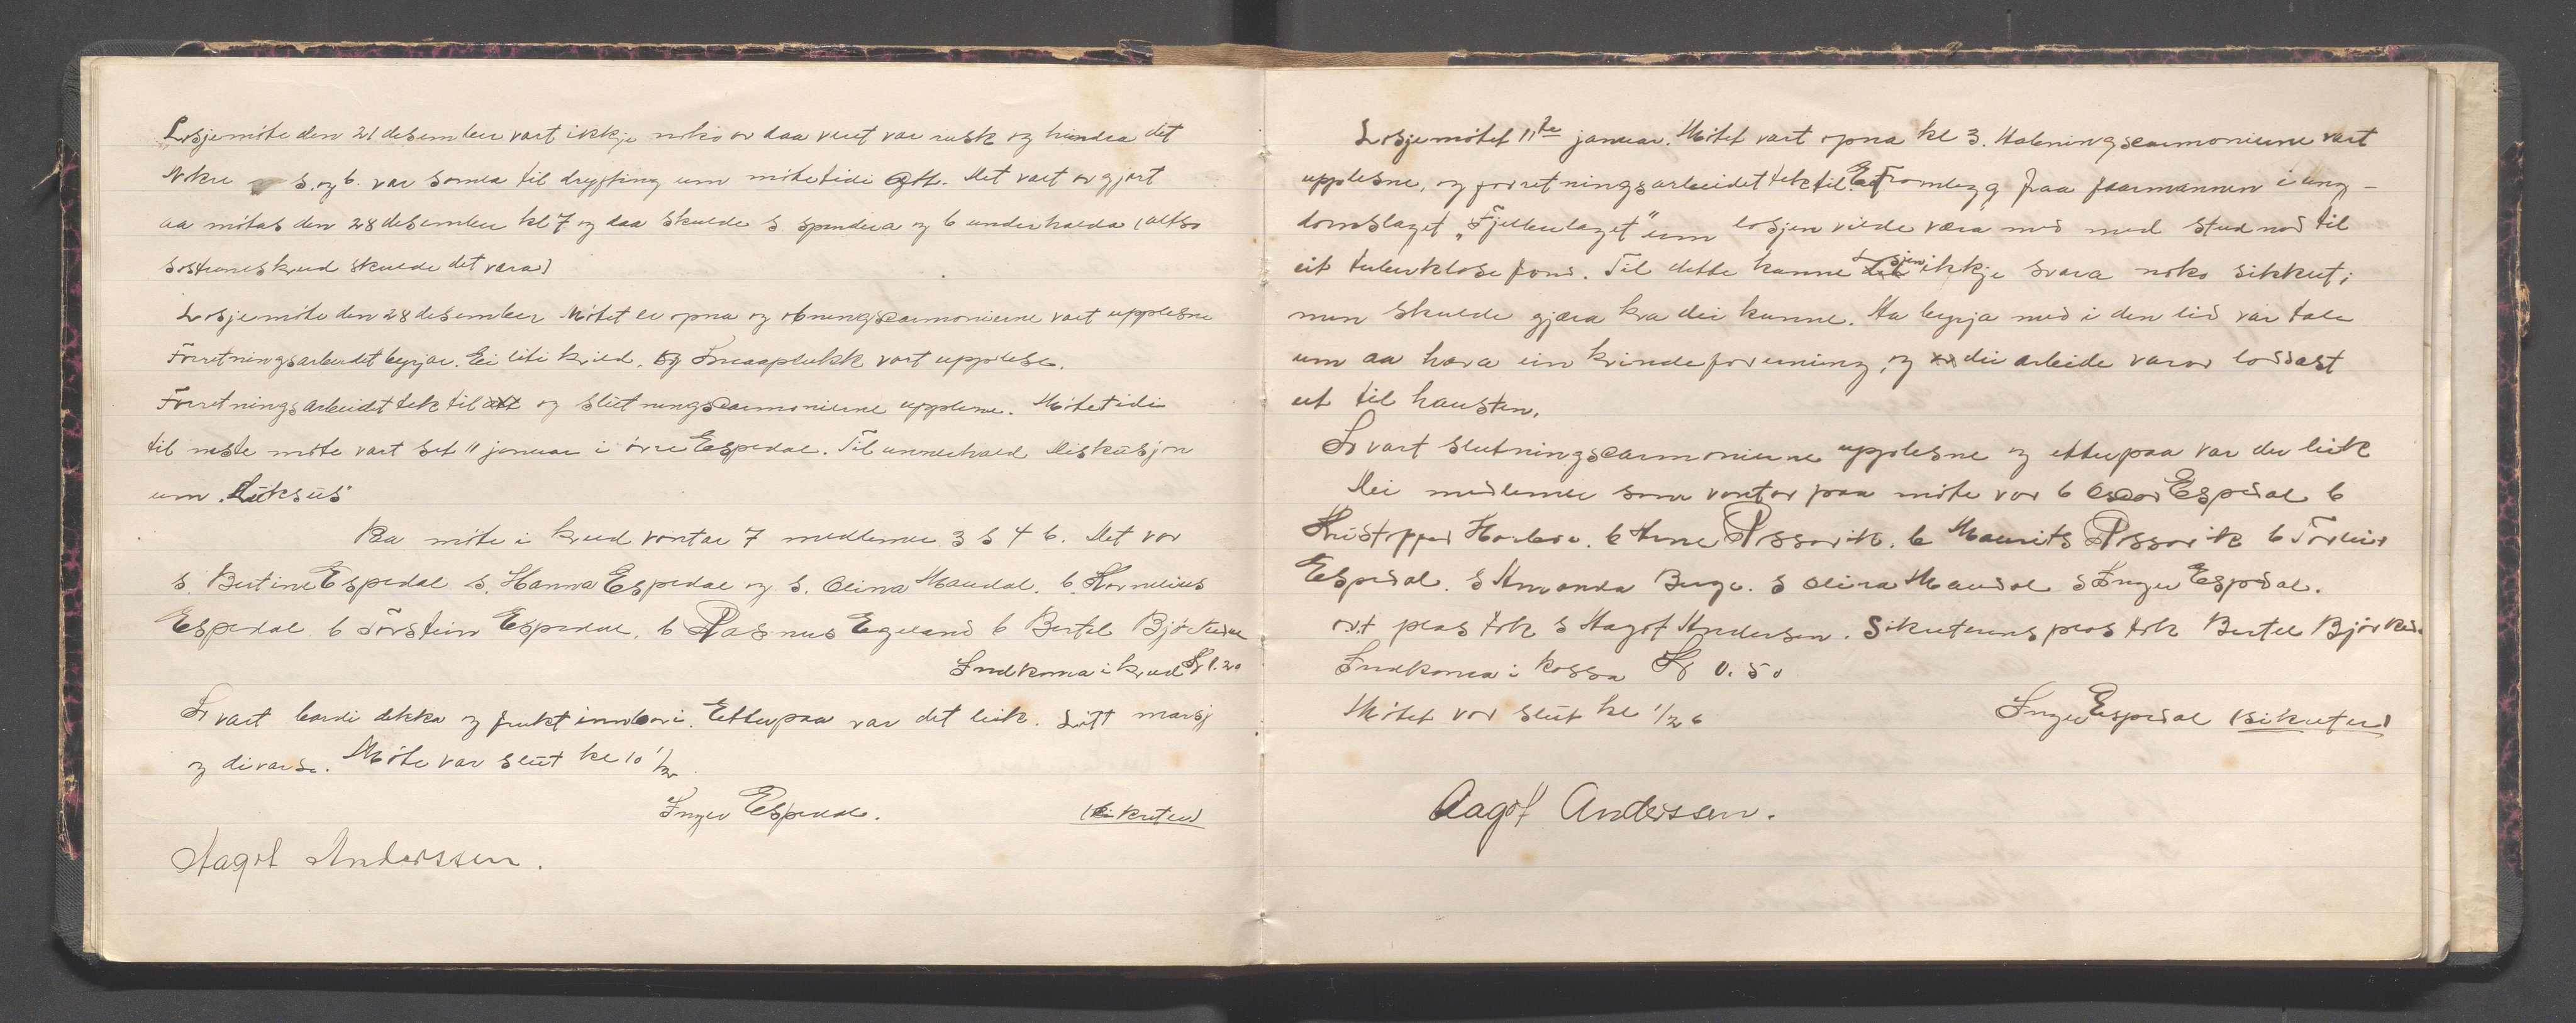 Losjemöte den 21 desember vart ikkje noko av daa veret var rusk og hindra det
Nokre s. og b. var somla til dryfting um mötetidi ogso. Det vart avgjort
aa mötas den 28 desember kl 7 og daa skulde s. spandera og b underhalda (altso
sostraneskveld skulde det vera)
Losjemöte den 28 desember Mötet er opna og obningscarmonierne vart upplesne
Forretningsarbeidet byrjar. Ei liti kveld. og Smaaplukk vart upplese.
Forretningsarbeidet tek til og slutningscarmonierne upplesne. Mötetidi
til neste möte vart set 11 januar i övre Espedal. Til underhald Diskusjon
um "Luksus"
Paa möte i kveld vantar 7 medlemer 3 s 4 b. Det var
s. Bertine Espedal s. Hanna Espedal og s. Olina Maudal. b. Kornelius
Espedal b Torstein Espedal, b Rasmus Egeland b Bertel Björkedal
Indkoma i kveld Kr 1.20
So vart bordi dekka og frukt innbori. Etterpaa var det leik. Litt marsj
og divarse. Möte var slut kl 10 1/2
Inger Espedal. (sikreter)
Aagot Anderssen.
Losjemötet 11te januar. Mötet vart opna kl 3. Aabningscarmonierne vart
upplesne, og forretningsarbeidet tek til. Et Framlegg fraa formannen i ung-
domslaget "Fjellbulaget" um losjen vilde vera med med studnad til
eit tuberklosefond. Til dette kunne losjen ikkje svara noko sikkert;
men skulde gjera kva dei kunne. Aa byrja med i den tid var tale
um aa hava ein kvindeforening, og dei arbeide varor loddast
ut til hausten.
So vart slutningscarmonierne upplesne og etterpaa var der leik
Dei medlemer som vantar paa möte var b Oscar Espedal b
Kristoffer b Arne Rossavik. b Maurits Rossavik b Torleir
Espedal. s Amanda Berge. s Olina Maudal s Inger Espedal.
o.v.t plas tok s Aagot Andersen. Sikreterens plas tok Bertel Björkedal
Indkoma i kassa Kr 0.50
Mötet var slut kl 1/2 6
Inger Espedal (sikreter)
Aagot Anderssen.